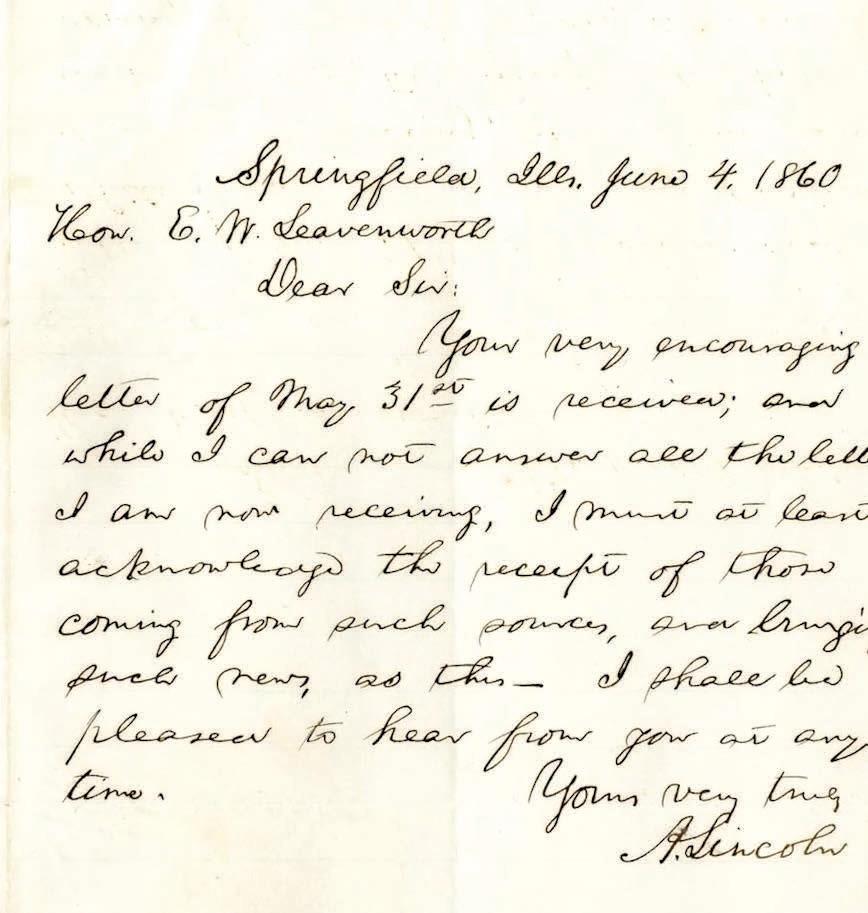 Springfield, Ills. June 4. 1860
Hon. E. W. Leavenworth
Dear Sir:
Your very encouraging
letter of May 31st is received; and
while I can not answer all the lett
I am now receiving, I must at least
acknowledge the receipt of those
coming from such sources, and bringi
such news, as this— I shall be
pleased to hear from you at any
time. Yours very truly
A. Lincoln